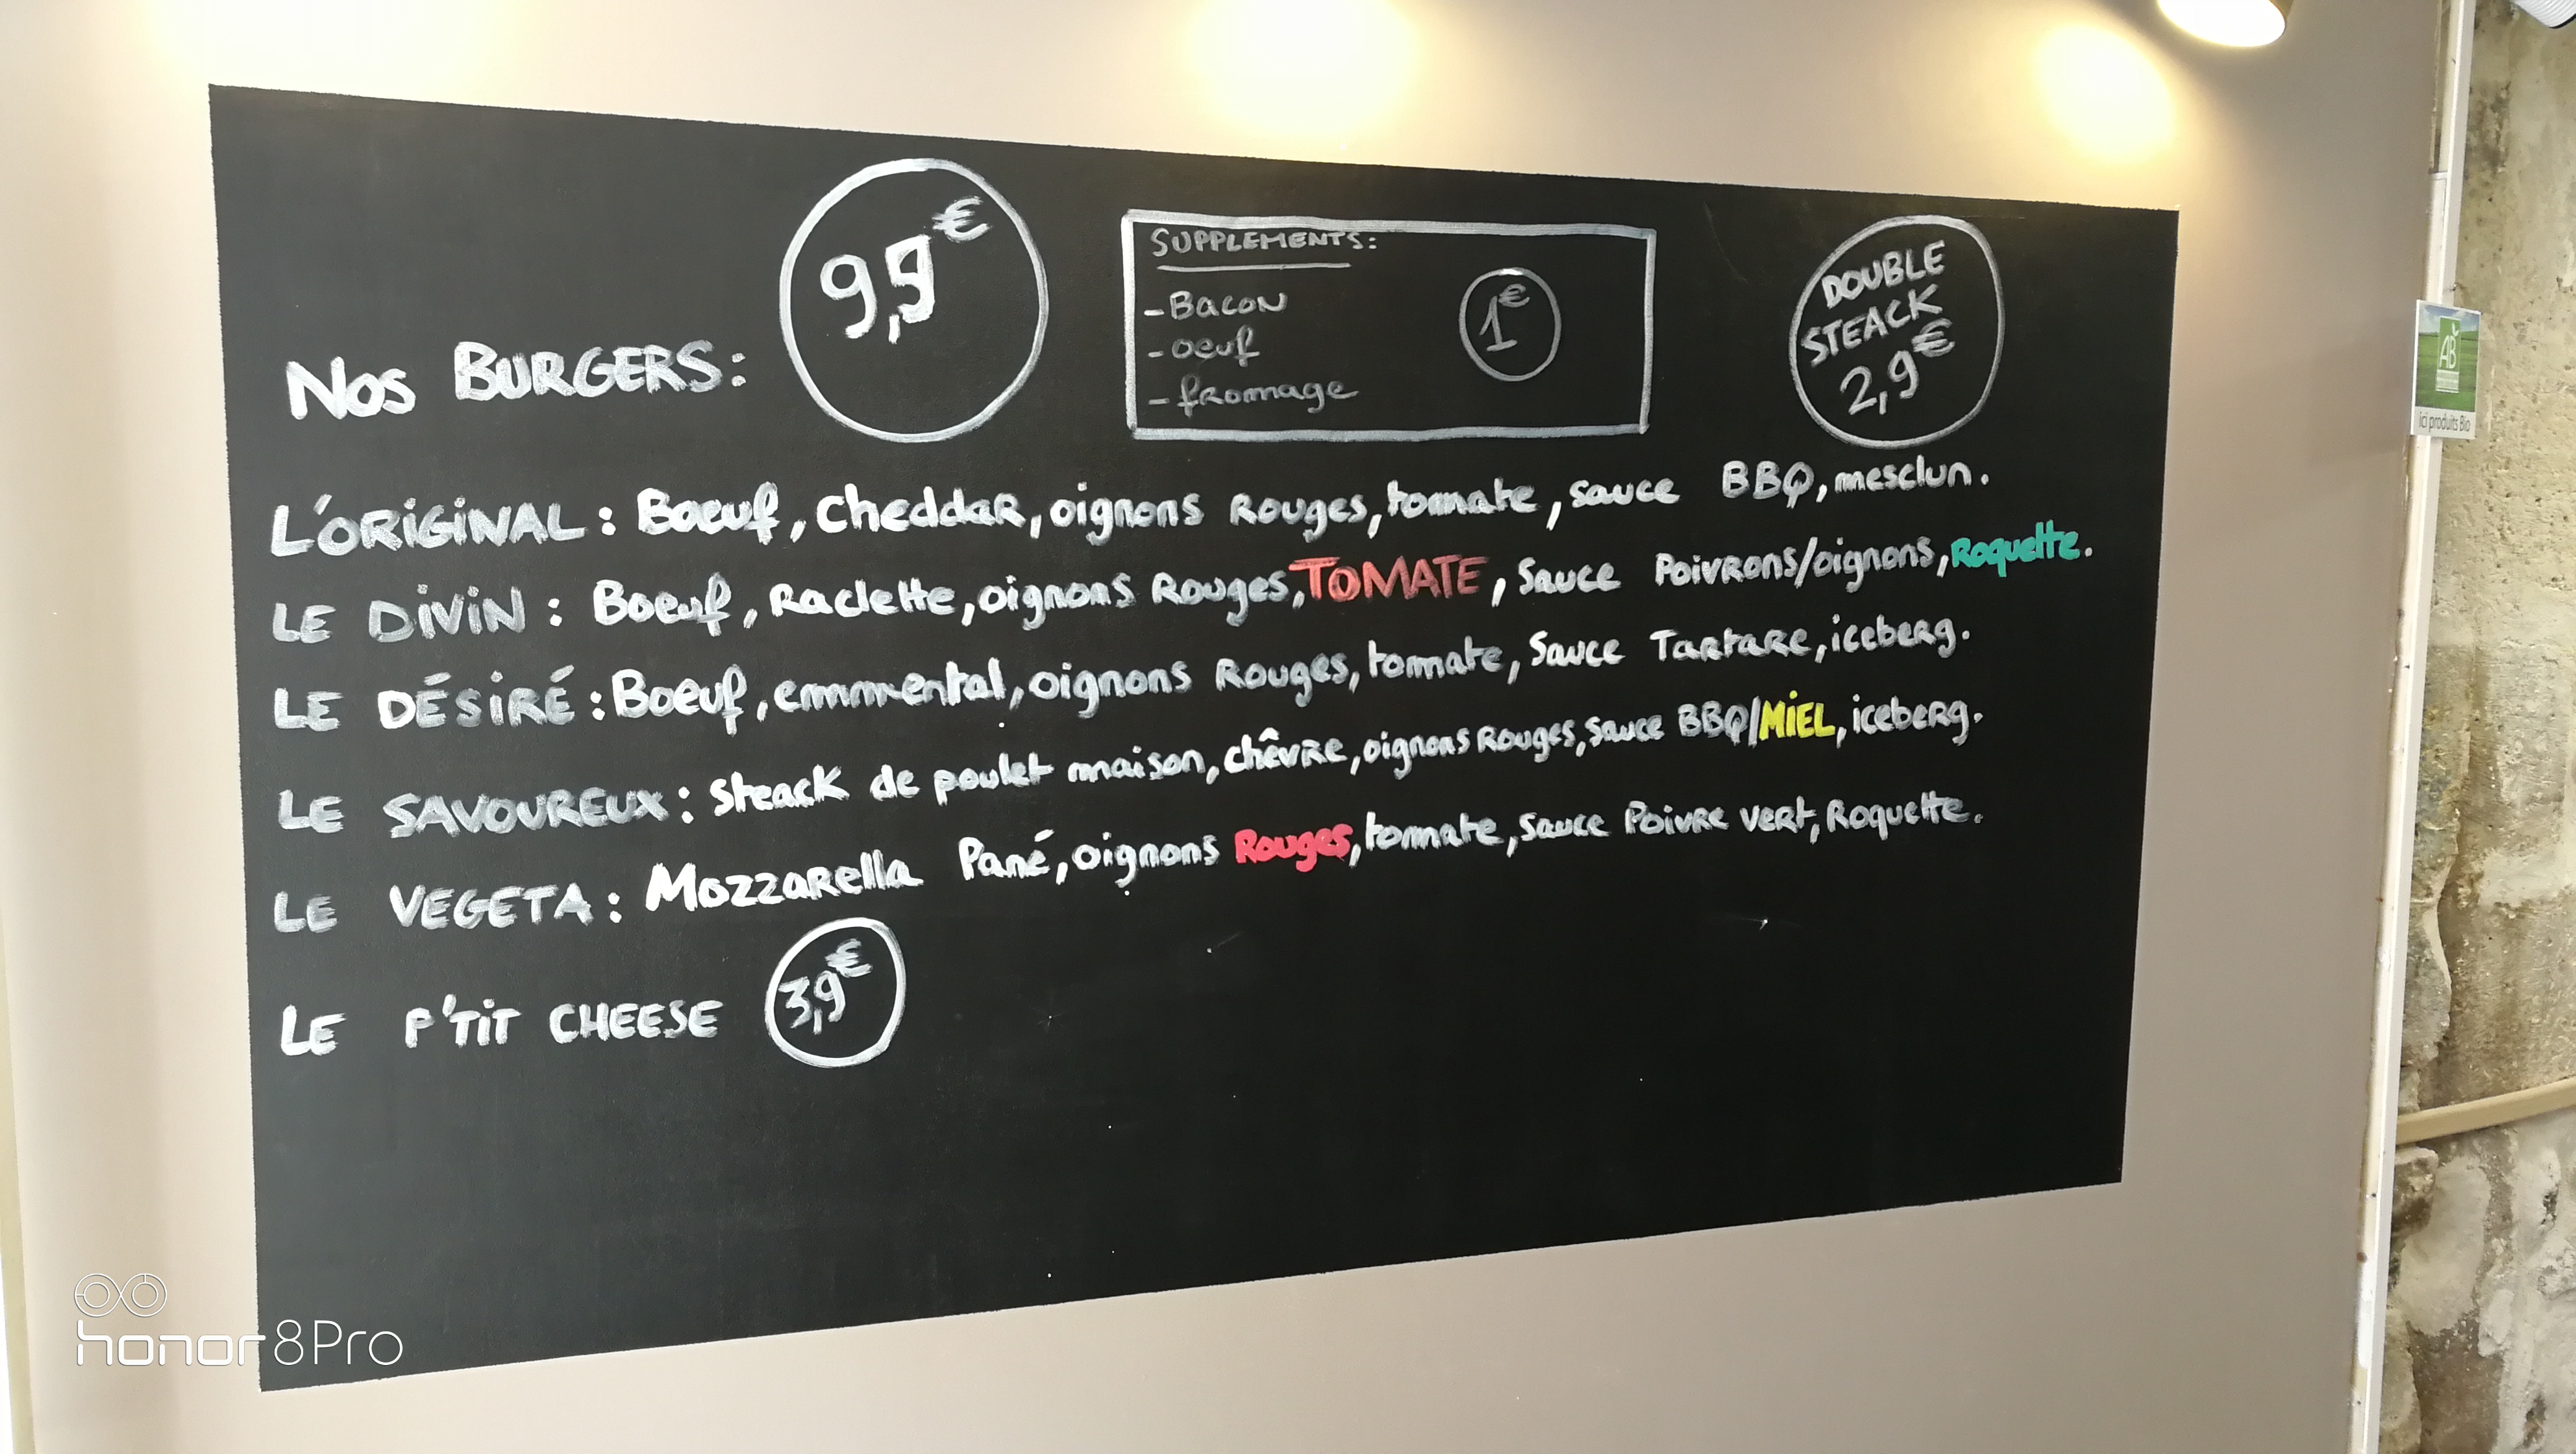 9,9€
SUPPLEMENTS:
- Bacon
- oeuf
- fromage
1€
DOUBLE
STEACK
2,9€
NOS BURGERS:
L'ORIGINAL : Boeuf, Cheddar, oignons Rouges, tomate, sauce BBQ, mesclun.
LE DIVIN : Boeuf, Raclette, oignons Rouges, TOMATE, Sauce Poivrons/oignons, Roquette.
LE DÉSIRÉ : Boeuf, emmental, oignons Rouges, tomate, Sauce Tartare, iceberg.
LE SAVOUREUX : Steack de poulet maison, chêvre, oignons Rouges, sauce BBQ/MIEL, iceberg.
LE VEGETA : Mozzarella Pané, oignons Rouges, tomate, Sauce Poivre vert, Roquette.
LE P'TIT CHEESE 3,9€
AB
Ici produits Bio
honor 8 Pro